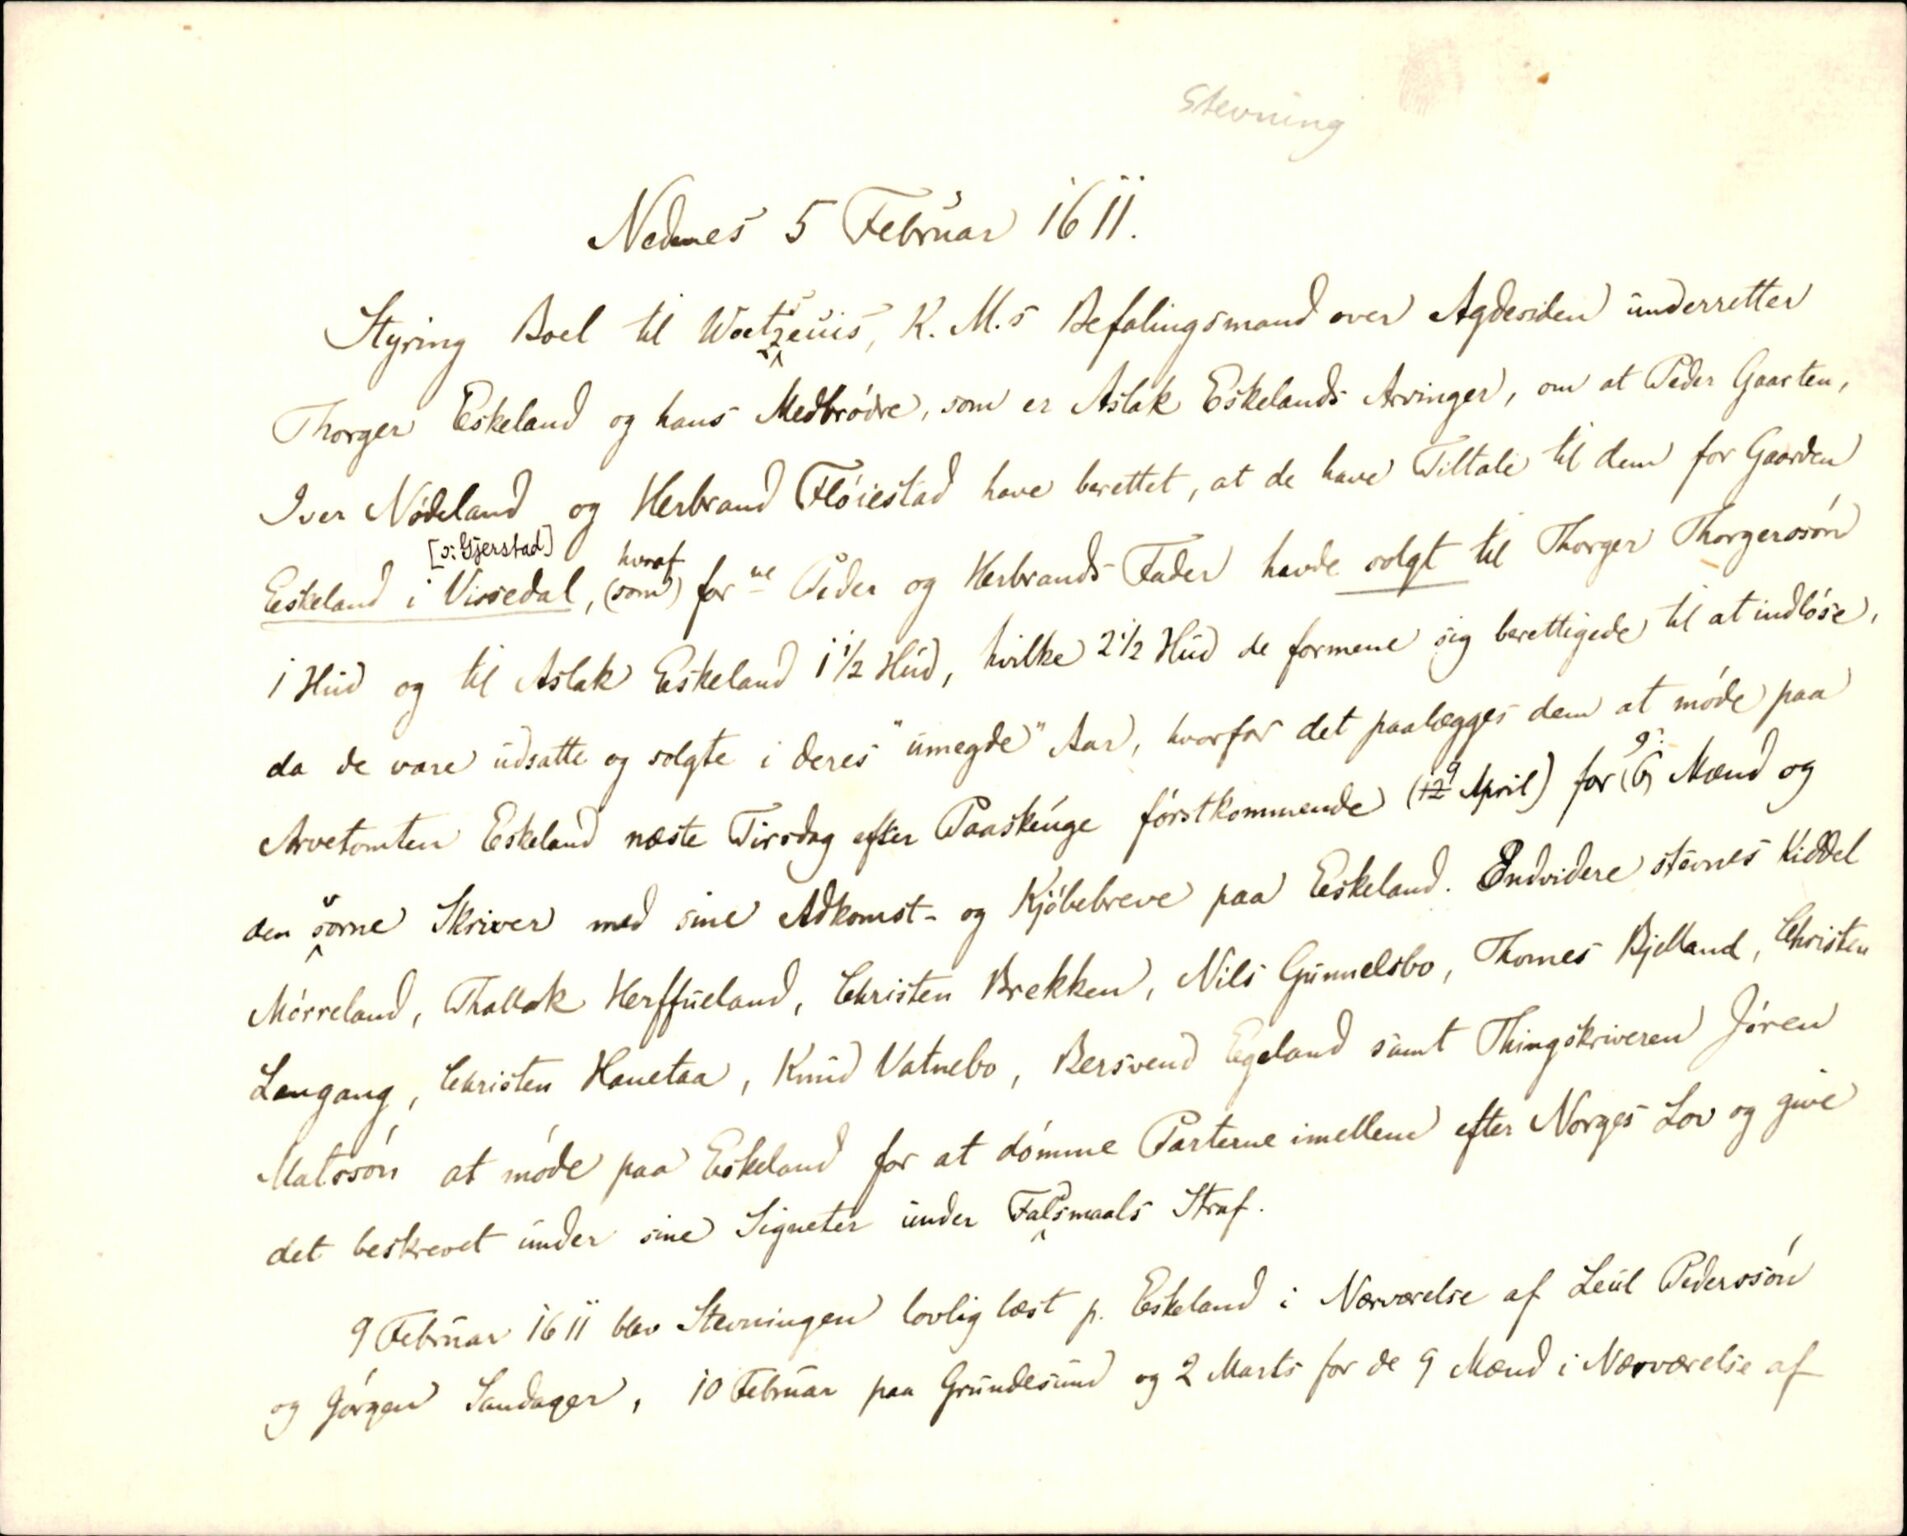 Stevning
Nedenes 5 Februar 1611.
Styring Boel til Woetzeuis, K. M.s Befalingsmand over Agdesiden underretter
Thorger Eskeland og hans Medbródre, som er Aslak Eskelands Arvinger, om at Peder Gaarten,
Iver Nódeland og Herbrand Flóiestad have berettet, at de have Tiltale til dem for Gaarden
[ɔ: Gjerstad] hvoraf
Eskeland i Vissedal, (som) for ne Peder og Herbrands Fader havde solgt til Thorger Thorgerssón
1 Hud og til Aslak Eskeland 1 1/2 Hud, hvilke 2 1/2 Hud de formene sig berettigede til at indlóse,
da de vare udsatte og solgte i deres "umegde" Aar, hvorfor det paalægges dem at móde paa
Arvetomten Eskeland næste Tirsdag efter Paaskeuge fórstkommende (12 9 April) for (6) 9: Mænd og
den sorne Skriver med sine Adkomst- og Kjóbebreve paa Eskeland. Endvidere stevnes Kiddel
Mórreland, Thallak Herffueland, Christen Brekken, Nils Gunnelsbo, Thomes Bjelland, Christen
Langang, Christen Hanetaa, Knud Vatnebo, Bersvend Egeland samt Thingskriveren Jóren
Matssón at móde paa Eskeland for at dómme Parterne imellem efter Norges Lov og give
det beskrevet under sine Signeter under Falsmaals Straf.
9 Februar 1611 blev Stevningen lovlig læst p. Eskeland i Nærværelse af Leul Pederssón
og Górgen Sandager, 10 Februar paa Grundesund og 2 Marts for de 9 Mænd i Nærværelse af